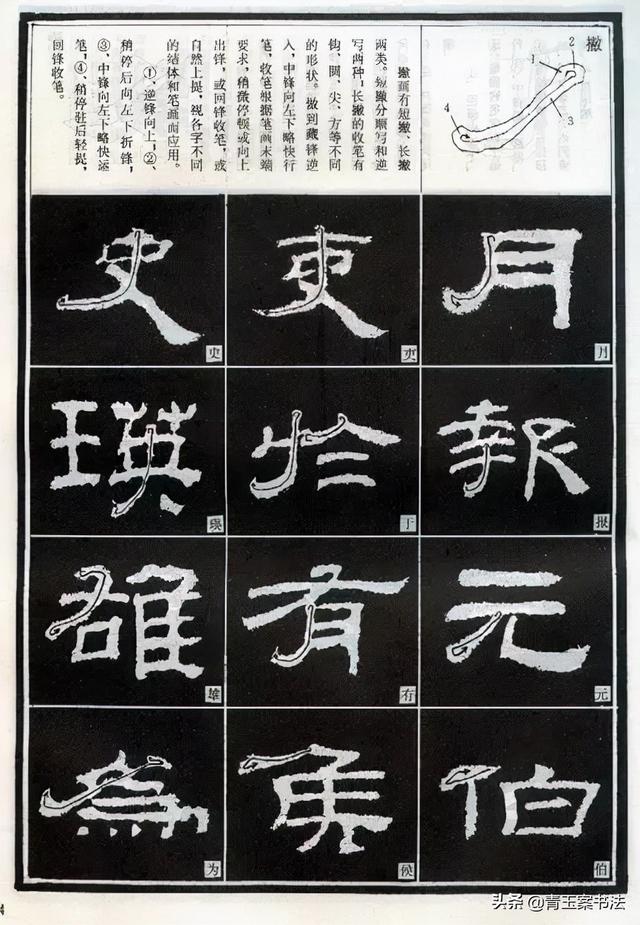 撇
1
2
3
4
撇画有短撇、长撇
两类。短撇分顺写和逆
写两种,长撇的收笔有
钩、圆、尖、方等不同
的形状。做到藏锋逆
入,中锋向左下略快行
笔,收笔根据笔画末端
要求,稍微停顿或向上
出锋,或回锋收笔,或
自然上提,视各字不同
的结体和笔画而应用。
①逆锋向上,②、
稍停后向左下折锋,
③、中锋向左下略快运
笔,④、稍停驻后轻提,
回锋收笔。
月
月
吏
吏
史
史
報
报
於
于
瑛
瑛
元
元
有
有
雄
雄
伯
伯
侯
候
為
为
头条 @青玉案书法